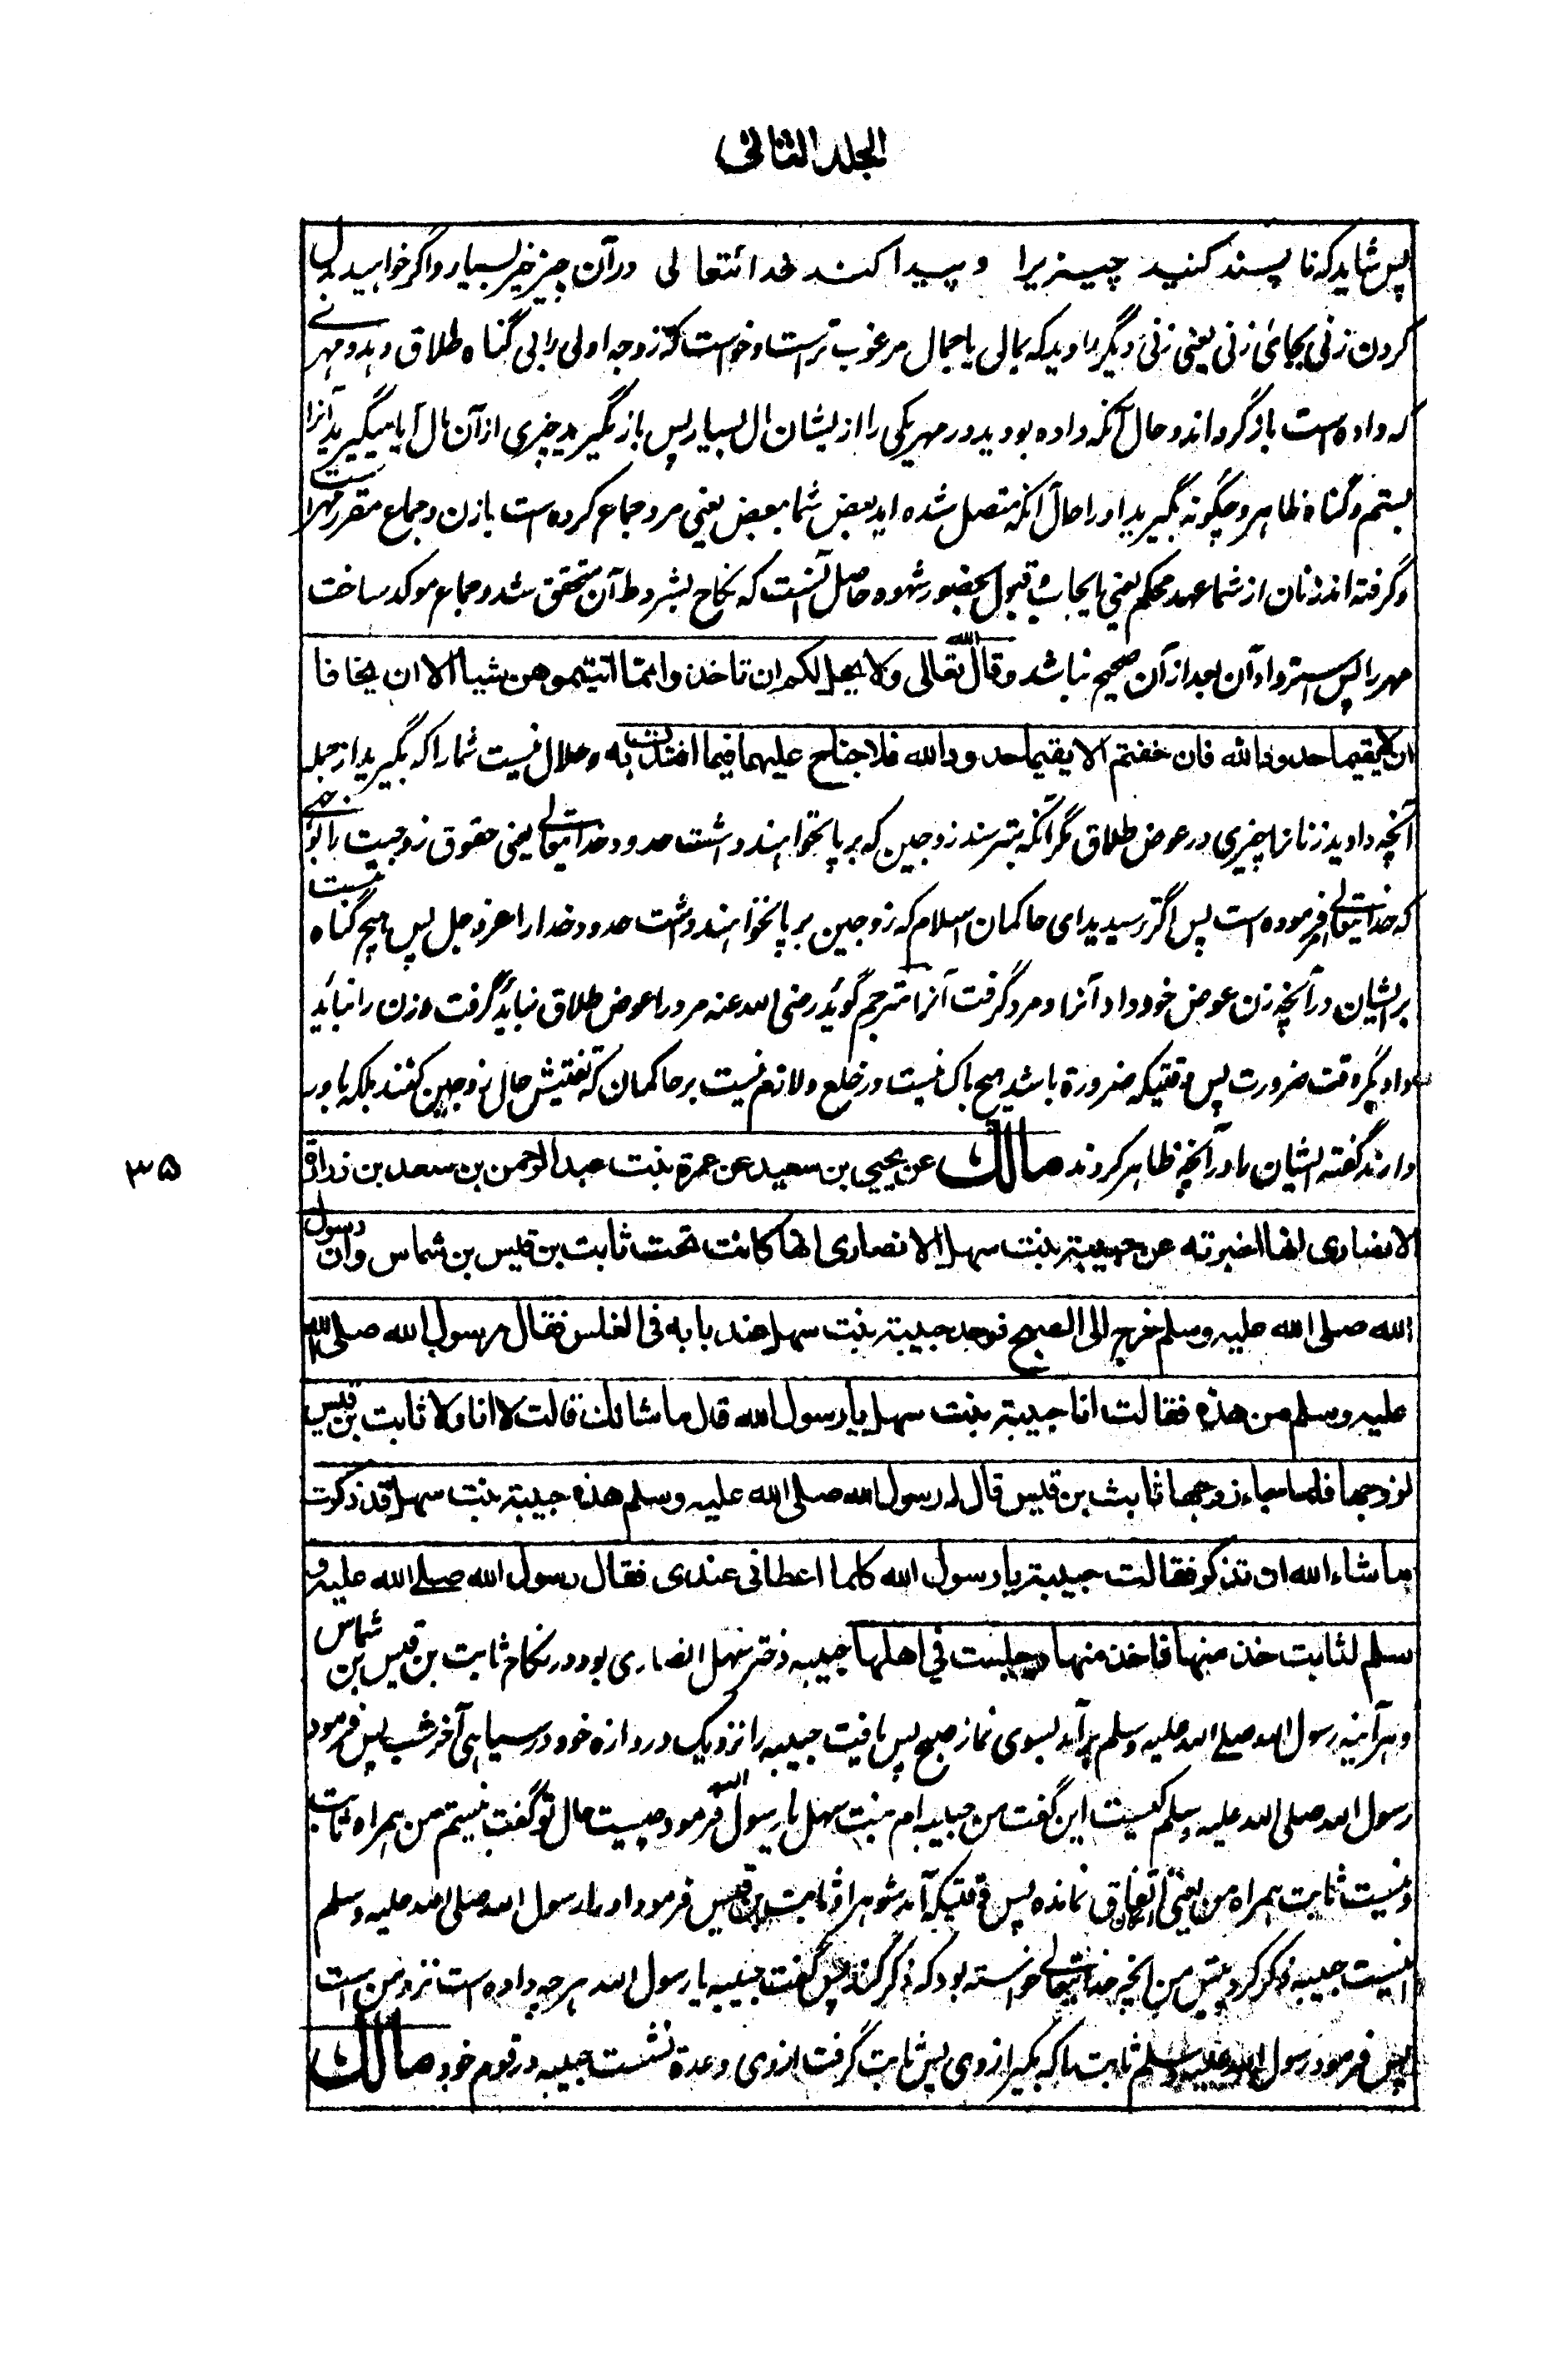 الجلد الثانی
پس شاید که ناپسند کنید چیزیرا و پیدا کند خدائتعالی درآن چیز خیر بسیار واگر خواهید بدل
کردن زنی بجائ زنی یعنی زنی دیگر را دید که بمالی یا جمال مرغوب ترست وخواست که زوجه اولی را بی گناه طلاق دهد و مهری
که داده است باز گرداند وحال آنکه داده بودید در مهر یکی را از یشان مال بسیار پس باز مگیرید چیزی از آن مال آیا میگیرید آنرا
بستم و گناه ظاهر و چگونه بگیرید او را حال آنکه متصل شده اید بعض شما ببعض یعنی مرد جماع کرده است بازن وجماع مقرر مهر است
و گرفته اند زنان از شما عهد محکم یعنی بایجاب و قبول بحضور شهود حاصل آنست که نکاح بشروط آن متحقق شد و جماع موکد ساخت
مهر را پس استرداد آن بعد از آن صحیح نباشد وقال الله تعالی ولا یحل لکم ان تاخذوا مما اتیتموهن شیأ الا ان یخافا
ان لا یقیما حدود الله فان خفتم الا یقیما حدود الله فلا جناح علیهما فیما افتدت به وحلال نیست شما را که بگیرید از جمله
آنچه دادید زنانرا چیزی در عوض طلاق مگر آنکه بترسند زوجین که برپا نخواهند داشت حدود خدایتعالی یعنی حقوق زوجیت را بوجهی
که خدایتعالی فرموده است پس اگر ترسیدید ای حاکمان اسلام که زوجین برپا نخواهند داشت حدود خدا را عز وجل پس هیچ گناه نیست
بر ایشان درآنچه زن عوض خود داد آنرا و مرد گرفت آنرا مترجم گوید رضی الله عنه مرد را عوض طلاق نباید گرفت و زن را نباید
داد مگر وقت ضرورت پس وقتیکه ضرورة باشد هیچ باک نیست در خلع ولازم نیست بر حاکمان که تفتیش حال زوجین کنند بلکه باور
دارند گفته ایشان را درآنچه ظاهر کردند مالك عن یحیی بن سعید عن عمرة بنت عبد الرحمن بن سعد بن زرارة
۳۵
الانصاری انها اخبرته عن حبیبة بنت سهل الانصاری انها کانت تحت ثابت بن قیس بن شماس وان رسول
الله صلی الله علیه وسلم خرج الی الصبح فوجد حبیبة بنت سهل عند بابه فی الغلس فقال رسول الله صلی الله
علیه وسلم من هذه فقالت انا حبیبة بنت سهل یا رسول الله قال ما شانك قالت لا انا ولا ثابت بن قیس
لزوجها فلما جاء زوجها ثابت بن قیس قال له رسول الله صلی الله علیه وسلم هذه حبیبة بنت سهل قد ذکرت
ما شاء الله ان تذکر فقالت حبیبة یا رسول الله کلما اعطانی عندی فقال رسول الله صلے الله علیه و
سلم لثابت خذ منها فاخذ منها وجلست فی اهلها حبیبه دختر سهل انصاری بود در نکاح ثابت بن قیس بن شماس
و هرآئینه رسول الله صلے الله علیه وسلم برآمد بسوی نماز صبح پس یافت حبیبه را نزدیک دروازه خود در سیاهی آخر شب پس فرمود
رسول الله صلی الله علیه وسلم کیست این گفت من حبیبه ام بنت سهل یا رسول الله فرمود چیست حال تو گفت نیستم من همراه ثابت
و نیست ثابت همراه من یعنی اتفاق نمانده پس وقتیکه آمد شوهر او ثابت بن قیس فرمود او را رسول الله صلی الله علیه وسلم
اینست حبیبه ذکر کرد پیش من آنچه خدایتعالی خواسته بود که ذکر کند پس گفت حبیبه یا رسول الله هر چه داده است نزد من است
پس فرمود رسول الله علیه وسلم ثابت را که بگیر از وی پس ثابت گرفت از وی وعدة نشست حبیبه در قوم خود مالك